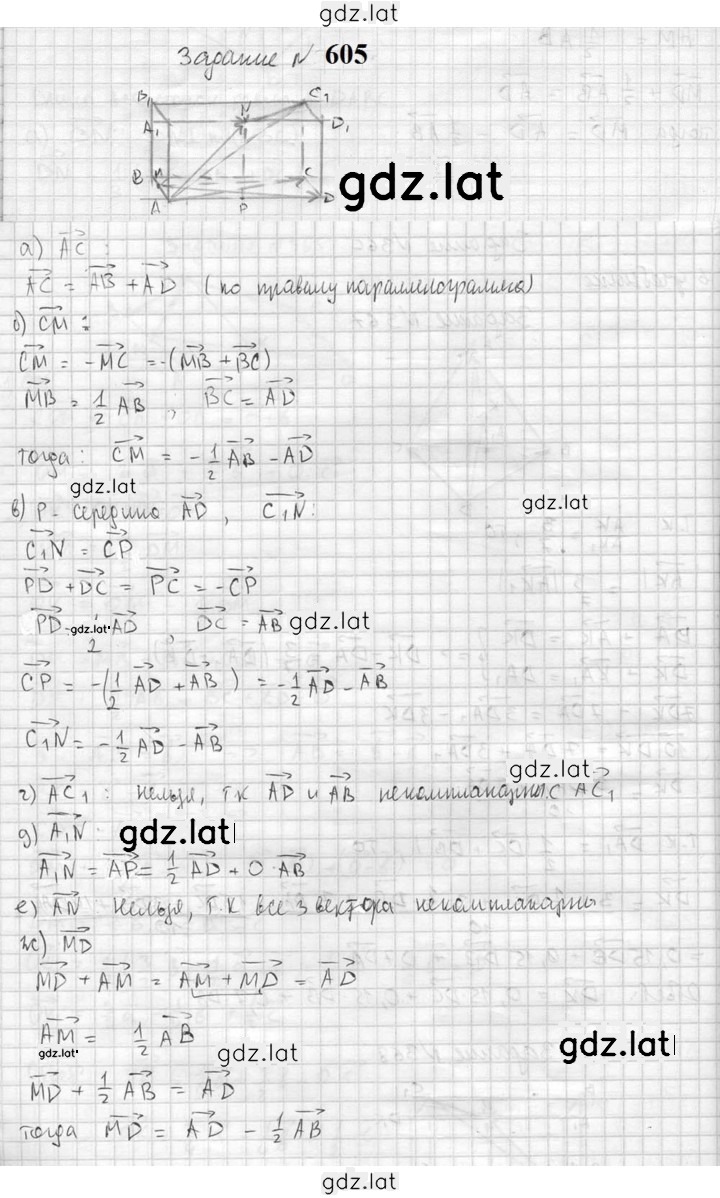 gdz.lat
Задание N 605
B₁ C₁
A₁ N D₁
B M C
gdz.lat
A P D
а) AC⃗ :
AC⃗ = AB⃗ + AD⃗ (по правилу параллелограмма)
б) CM⃗ :
CM⃗ = -MC⃗ = -(MB⃗ + BC⃗)
MB⃗ = 1/2 AB⃗ ; BC⃗ = AD⃗
тогда: CM⃗ = - 1/2 AB⃗ - AD⃗
gdz.lat
gdz.lat
в) P - середина AD⃗ , C₁N⃗ :
C₁N⃗ = CP⃗
PD⃗ + DC⃗ = PC⃗ = -CP⃗
PD⃗ gdz.lat 1/2 AD⃗ ; DC⃗ = AB⃗ gdz.lat
CP⃗ = -(1/2 AD⃗ + AB⃗) = - 1/2 AD⃗ - AB⃗
C₁N⃗ = - 1/2 AD⃗ - AB⃗
gdz.lat
г) AC₁⃗ : нельзя, т.к AD⃗ и AB⃗ некомпланарны с AC₁⃗
д) A₁N⃗ : gdz.lat
A₁N⃗ = AP⃗ = 1/2 AD⃗ + 0 · AB⃗
е) AN⃗ нельзя, т.к все 3 вектора некомпланарны
ж) MD⃗
MD⃗ + AM⃗ = AM⃗ + MD⃗ = AD⃗
AM⃗ = 1/2 AB⃗
gdz.lat gdz.lat gdz.lat
MD⃗ + 1/2 AB⃗ = AD⃗
тогда MD⃗ = AD⃗ - 1/2 AB⃗
gdz.lat